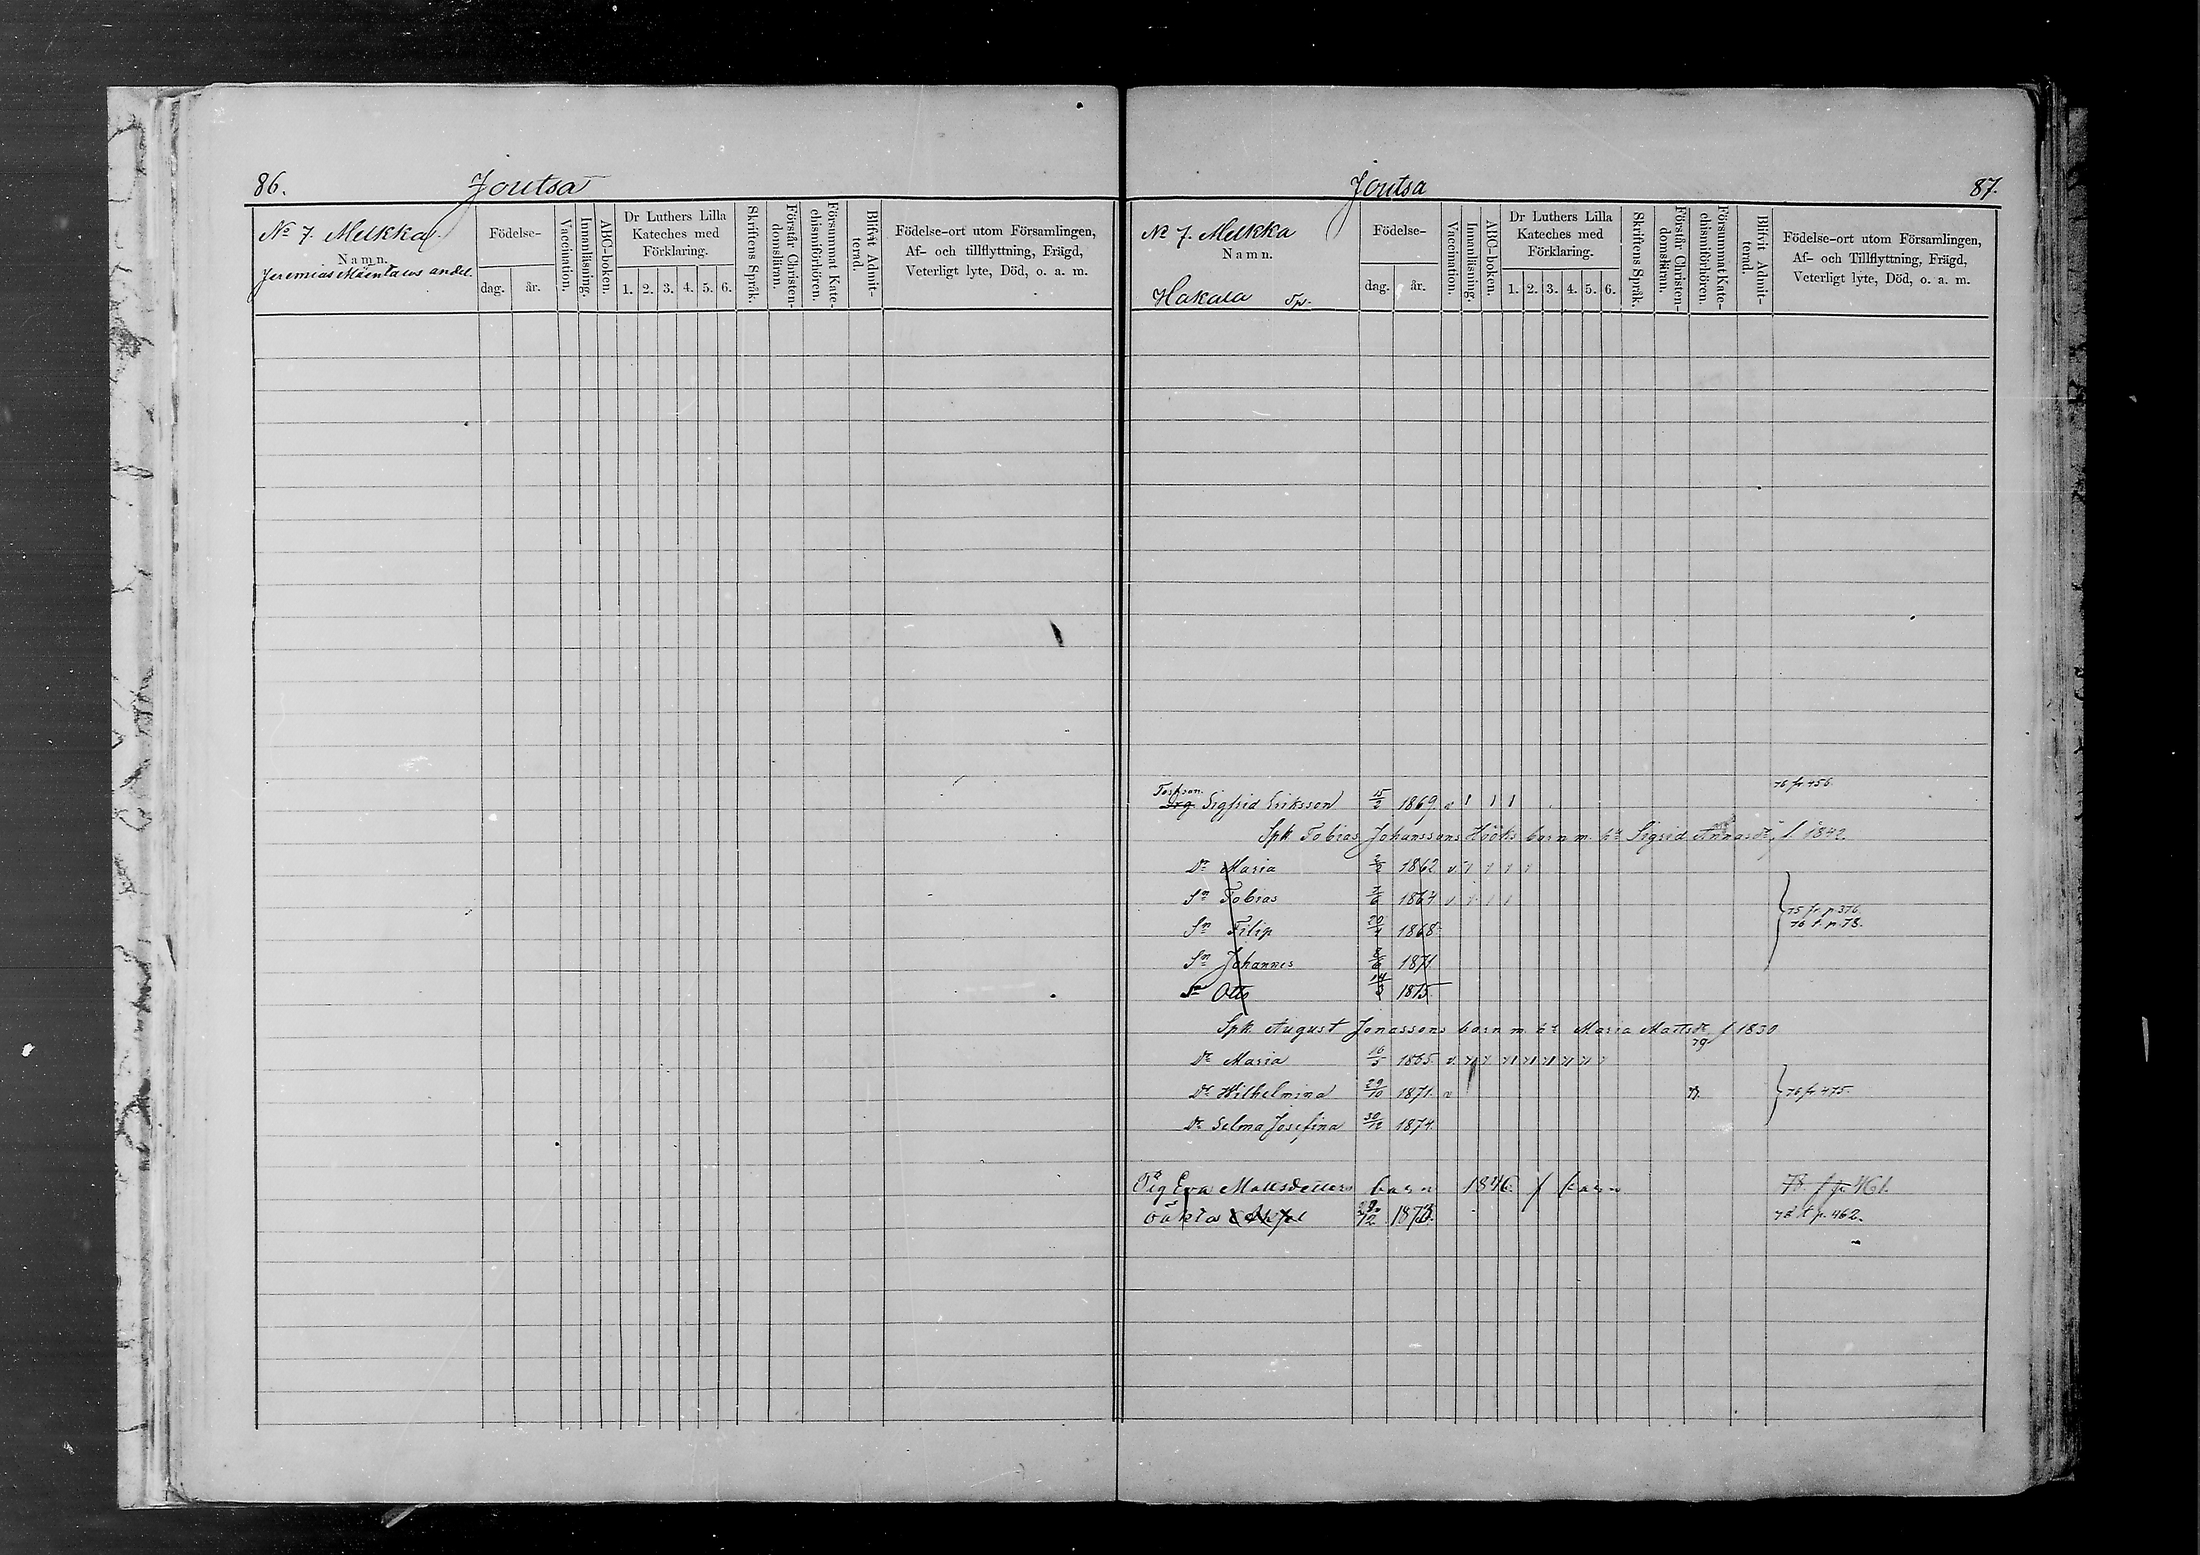 86.
Joutsa
No 7. Melkka.
Namn.
Jeremias Mäentaus andel.
Födelse-
dag.
år.
Vaccination.
Innanläsning.
ABC-boken.
Dr Luthers Lilla
Kateches med
Förklaring.
1. 2. 3. 4. 5. 6.
Skriftens Språk.
Förstår Christen-
domsläran.
Försummat Kate-
chismiförhören.
Blifvit Admit-
terad.
Födelse-ort utom Församlingen,
Af- och tillflyttning, Frägd,
Veterligt lyte, Död, o. a. m.
Joutsa
87.
No 7. Melkka
Namn.
Hakala
Födelse-
dag.
år.
Vaccination.
Innanläsning.
ABC-boken.
Dr Luthers Lilla
Kateches med
Förklaring.
1. 2. 3. 4. 5. 6.
Skriftens Språk.
Förstår Christen-
domsläran.
Försummat Kate-
chismiförhören.
Blifvit Admit-
terad.
Födelse-ort utom Församlingen,
Af- och Tillflyttning, Frägd,
Veterligt lyte, Död, o. a. m.
76 fr 456
Sigfrid Eriksson 15/2 1869 v
Spk Tobias Johanssons Hööks barn m. h. Sigrid Annasdr f. 1842
Dr Maria 1862 v
Sn Tobias 7/6 1864 v
75 fr. p. 376
Sn Filip 1868
76 t. p. 78.
Sn Johannes 1871
Sn Otto 1875
Spk August Jonassons barn m. h. Maria Mattsdr f 1830
79
Dr Maria 16/5 1865 v
Dr Wilhelmina 29/10 1871. v
76 fr 475.
Dr Selma Josefina 30/12 1874.
Pig Eva Mattsdotters barn 1846 f barn
78 f p. 461.
1878.
78 t p. 462.